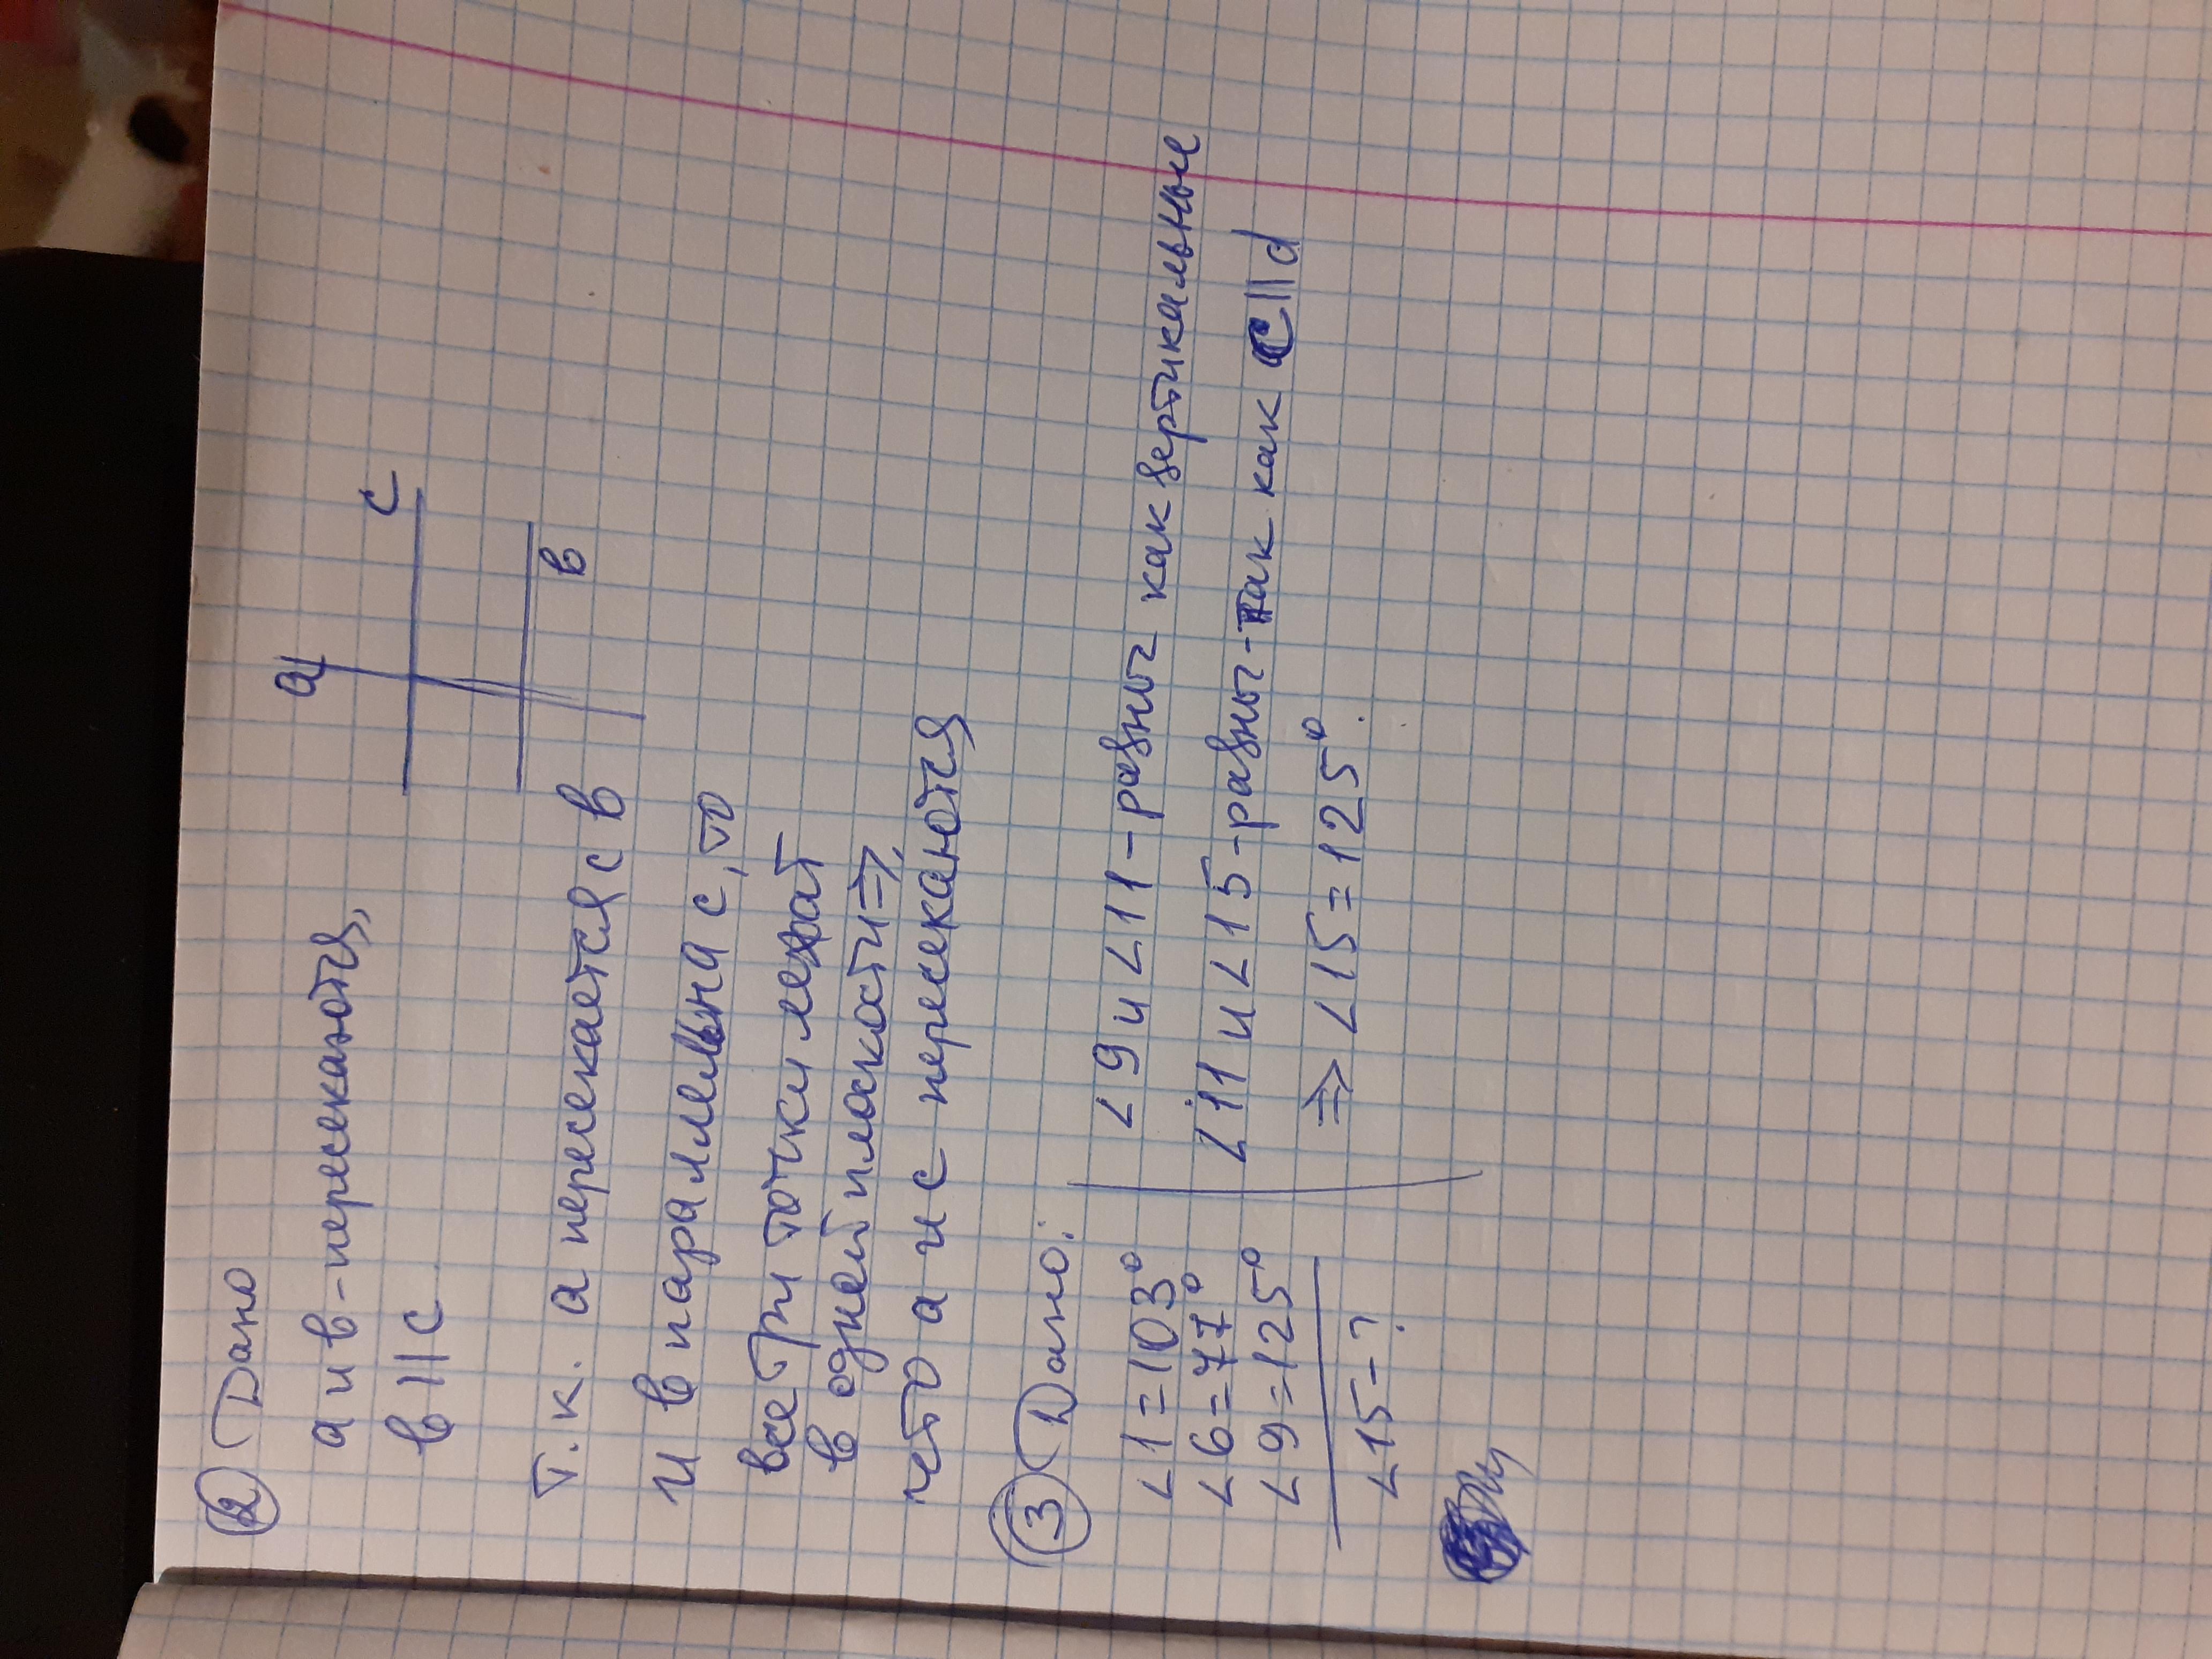 2 Дано
a
a и в - пересекаются,
c
в || c
в
т.к. a пересекается с в
и в параллельна с, то
все три точки лежат
в одней плоскости =>,
что a и с пересекаются
3 Дано:
<1 = 103°
<6 = 77°
<9 = 125°
<15 - ?
<9 и <11 - равны как вертикальные
<11 и <15 - равны - так как c || d
=> <15 = 125°.